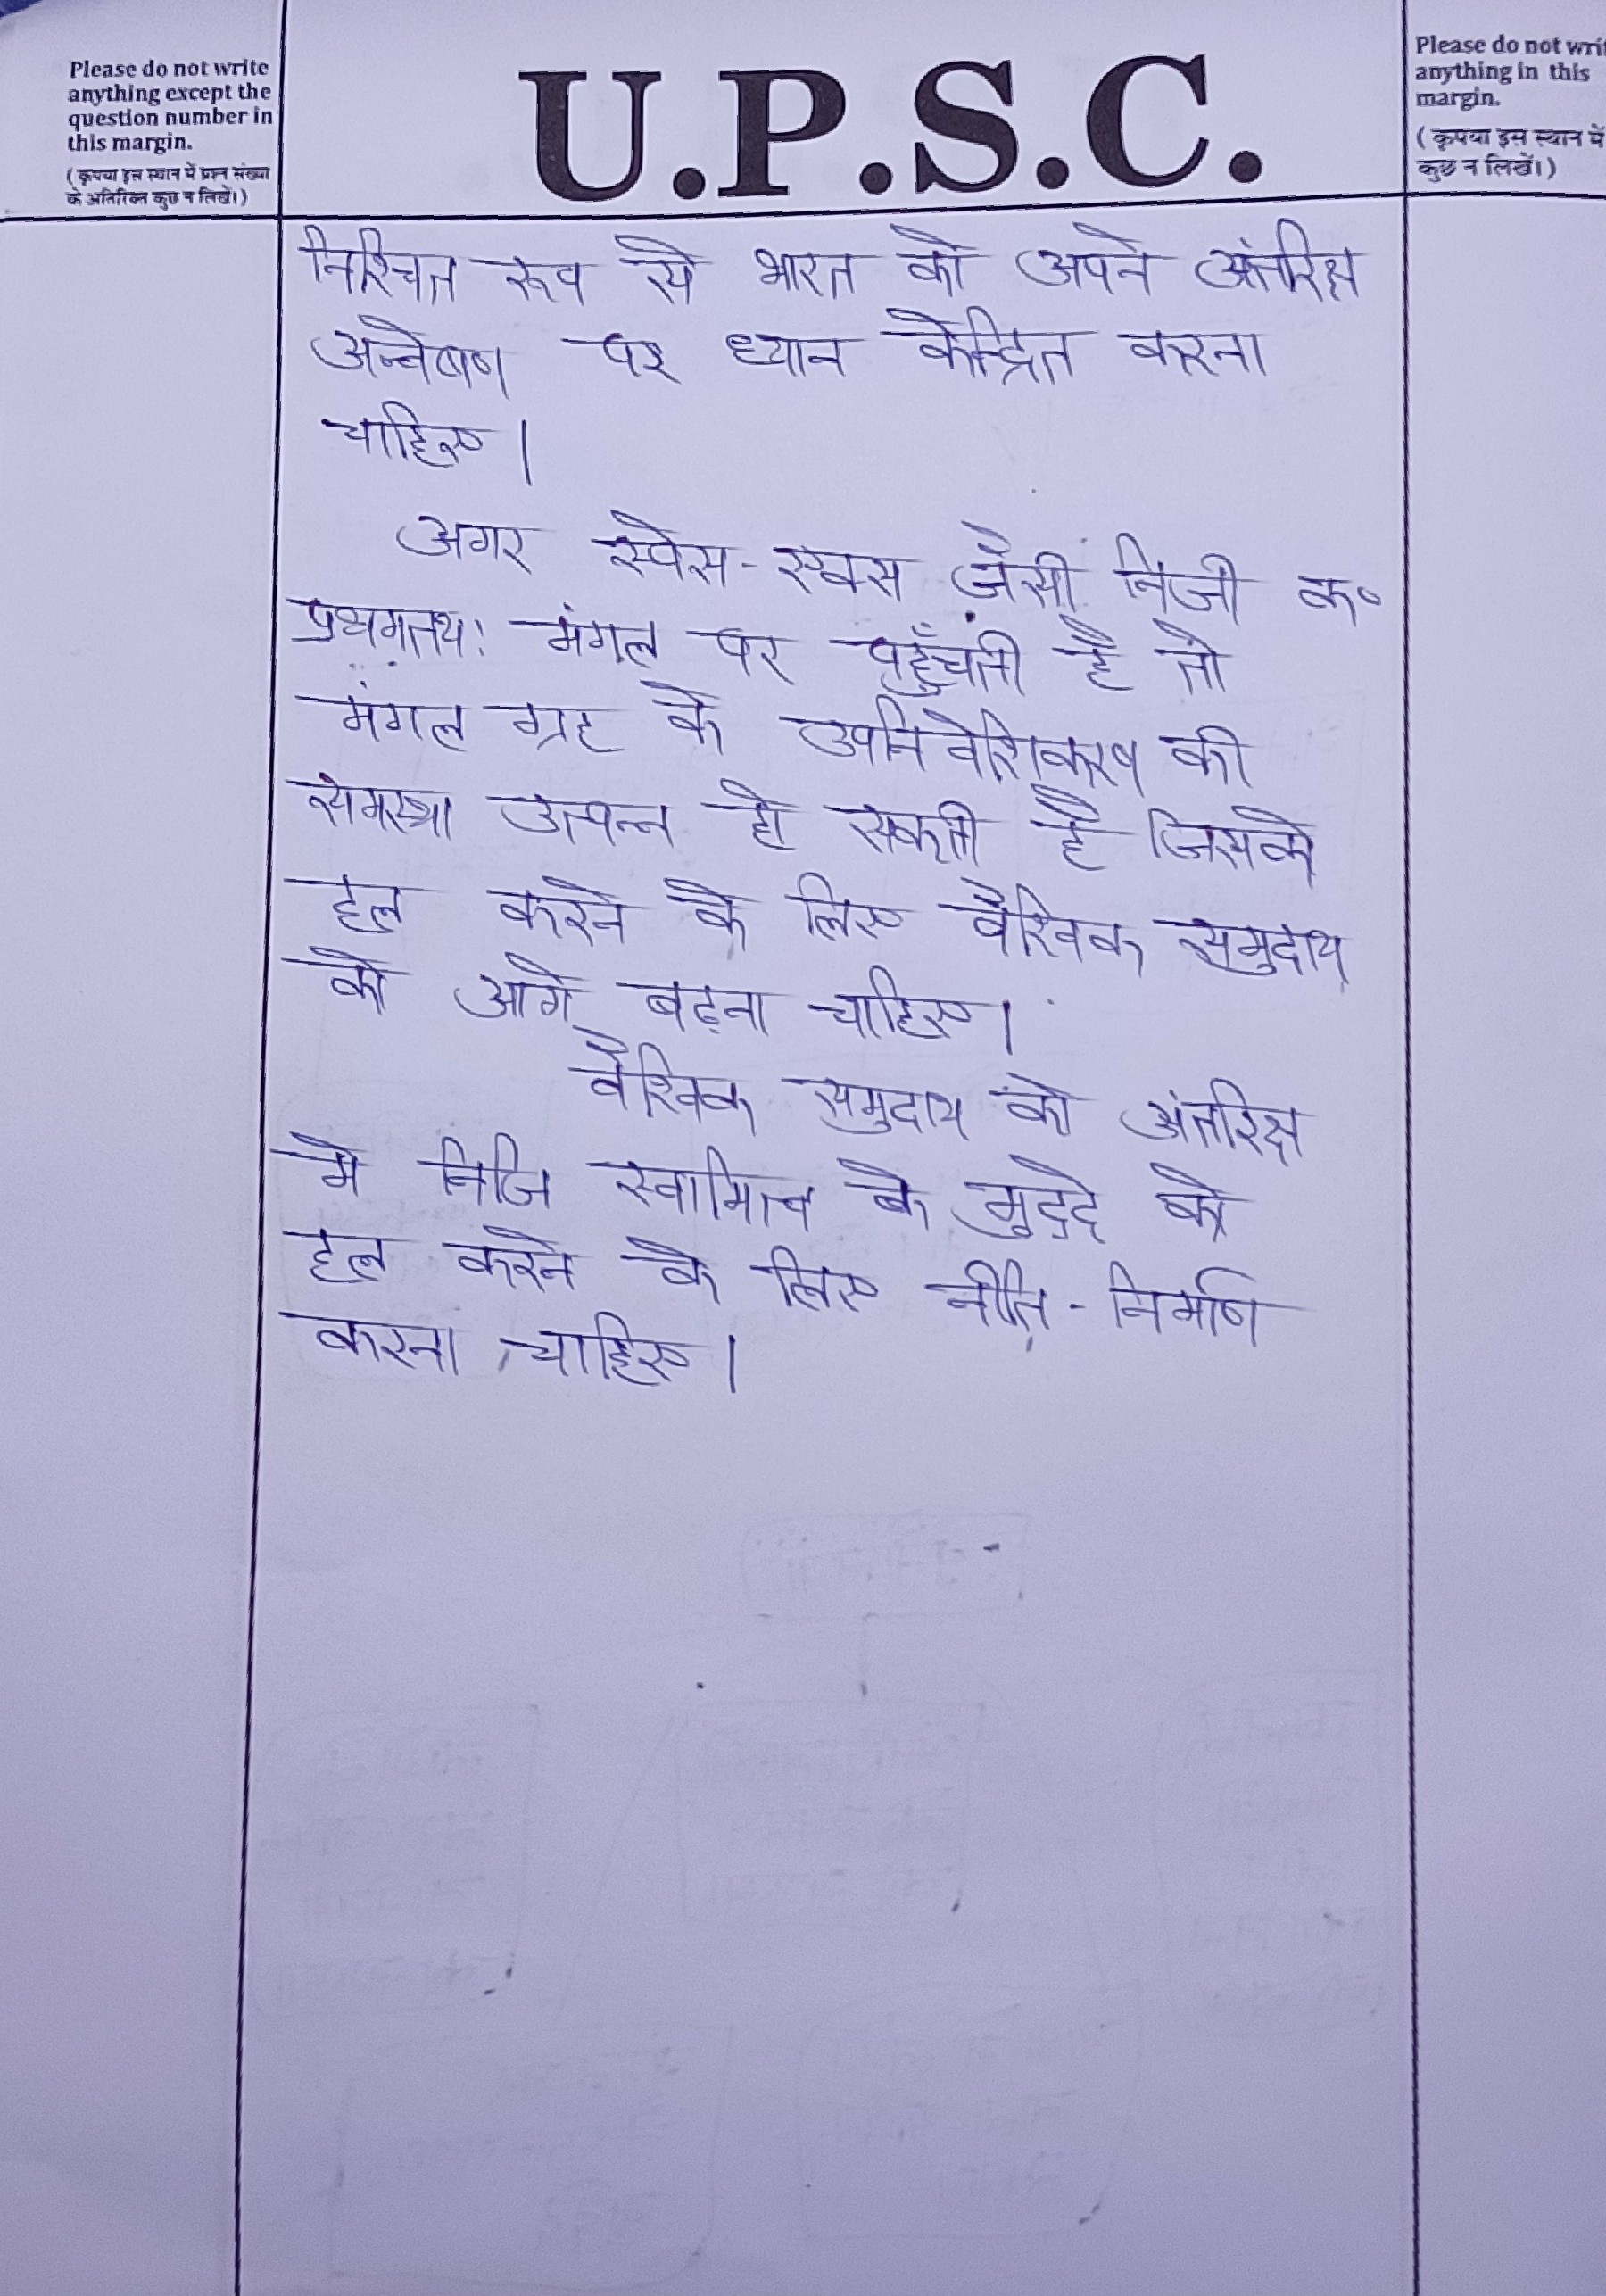 Please do not write
anything except the
question number in
this margin.
(कृपया इस स्थान में प्रश्न संख्या
के अतिरिक्त कुछ न लिखें।)
U.P.S.C.
Please do not wri
anything in this
margin.
(कृपया इस स्थान में
कुछ न लिखें।)
निश्चित रूप से भारत को अपने अंतरिक्ष
अन्वेषण पर ध्यान केन्द्रित करना
चाहिए।
अगर स्पेस-एक्स जैसी निजी क॰
प्रथमतयः मंगल पर पहुँचती है तो
मंगल ग्रह के उपनिवेशिकरण की
समस्या उत्पन्न हो सकती है जिसको
हल करने के लिए वैश्विक समुदाय
को आगे बढ़ना चाहिए।
वैश्विक समुदाय को अंतरिक्ष
मे निजि स्वामित्व के मुद्दे को
हल करने के लिए नीति-निर्माण
करना चाहिए।